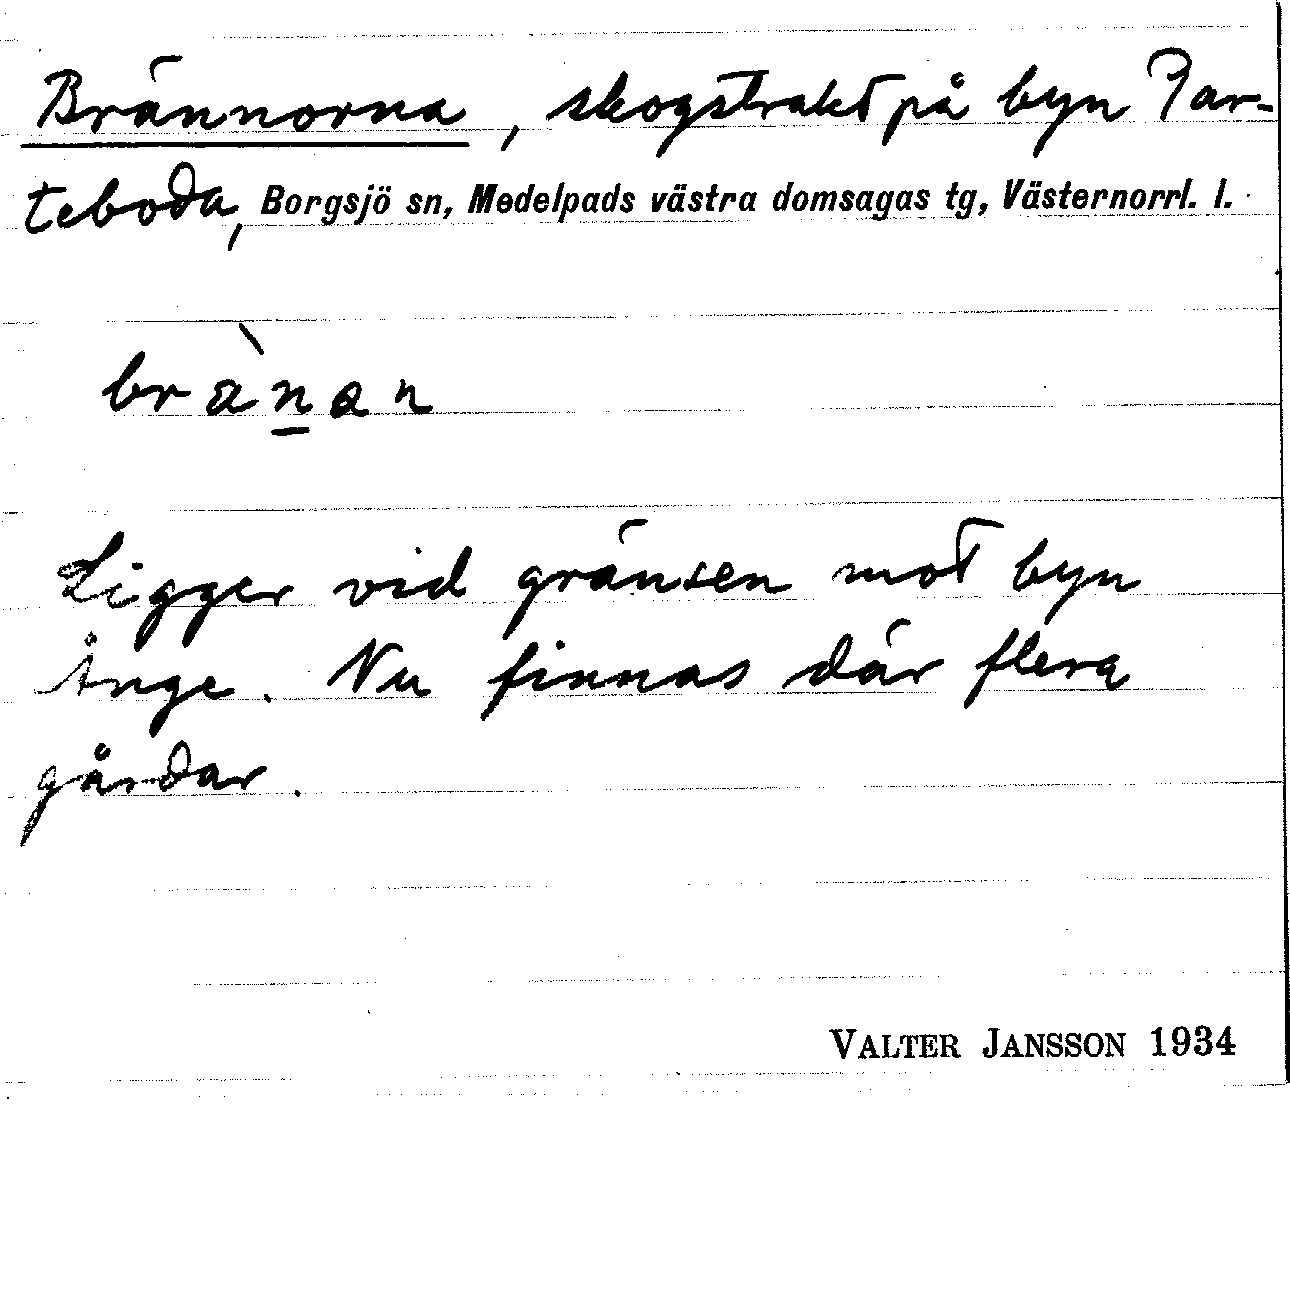 Brännorna, skogstrakt på byn Par-
teboda, Borgsjö sn, Medelpads västra domsagas tg, Västernorrl. l.
brä̀n̲an
Ligger vid gränsen mot byn
Ånge. Nu finnas där flera
gårdar.
VALTER JANSSON 1934